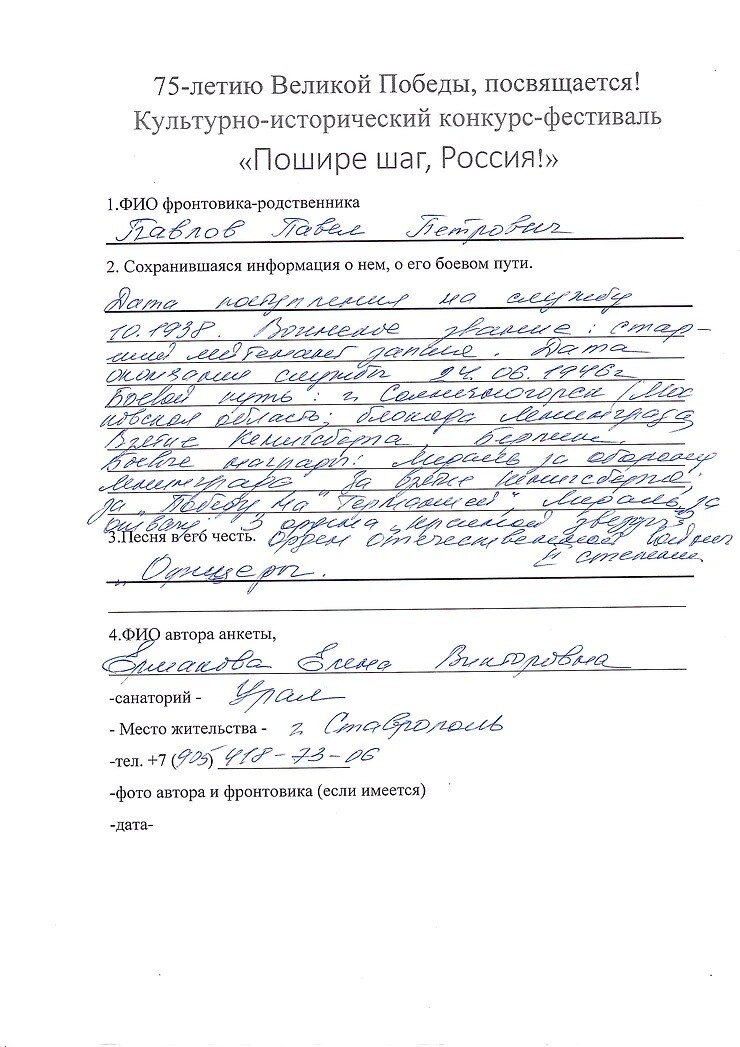 75-летию Великой Победы, посвящается!
Культурно-исторический конкурс-фестиваль
«Пошире шаг, Россия!»
1.ФИО фронтовика-родственника
Павлов Павел Петрович
2. Сохранившаяся информация о нем, о его боевом пути.
Дата поступления на службу
10.1938. Воинское звание: стар-
ший лейтенант запаса. Дата
окончания службы 24.06.1946г
Боевой путь: г. Солнечногорск (Мос
ковская область; блокада Ленинграда
Взятие Кенигсберга, Берлин.
Боевые награды: Медаль за оборону
Ленинграда За взятие Кенигсберга;
за "Победу на" Германией", Медаль за
отвагу". 3 ордена "красной звезды"
3.Песня в его честь. Орден отечественной войны
II степени
"Офицеры.
4.ФИО автора анкеты,
Ермакова Елена Викторовна
-санаторий - Урал
- Место жительства - г. Ставрополь
-тел. +7 (905) 418-73-06
-фото автора и фронтовика (если имеется)
-дата-